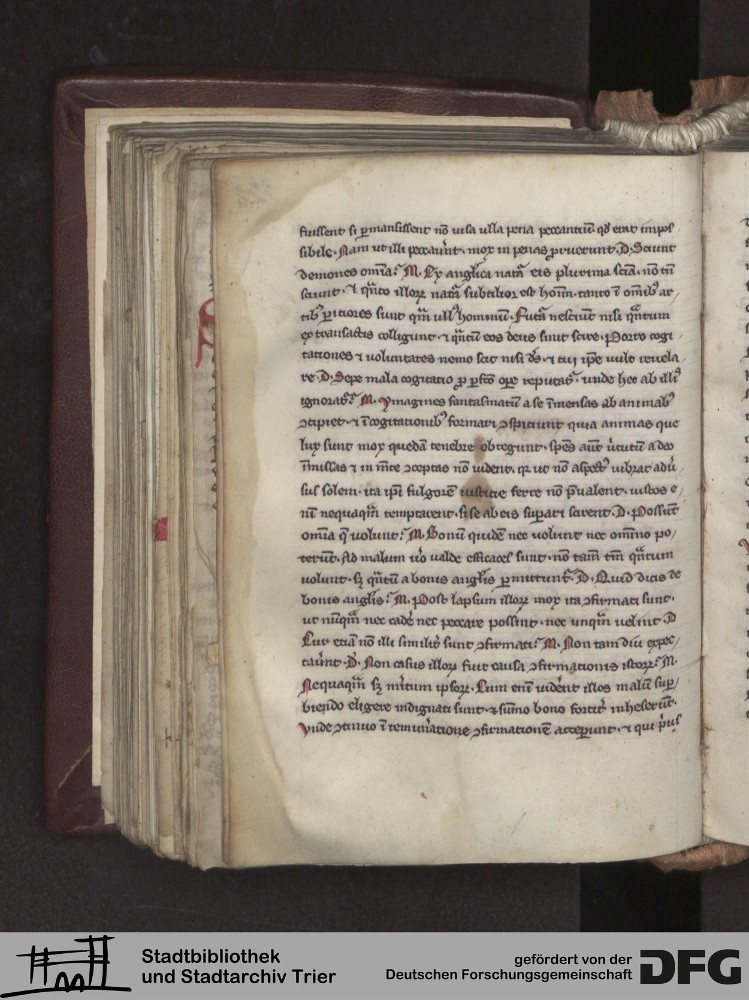 fuissent si ꝑmansissent nō uisa ulla pena peccantiū qd̄ erat impos
sibile. Nam ut illi peccauͬnt. mox in penas ꝓruerunt. D. Sciunt
demones omīa? M. Ex anglica natͣ eis plurima sciā. nō tn̄
sciunt. ⁊ qͣnto illoꝝ natͣ subtilior est hom̄. tanto ī om̄ibꝰ ar
tibꝰ ꝑitiores sunt qͣm ullꝰ hominū. Futͣa nesciunt nisi qͣntum
ex transactis colligunt. ⁊ qͣntū eos deus sinit scire. Porro cogi
tationes ⁊ uoluntates nemo scit nisi ds̄. ⁊ cui ip̄e uult reuela
re. D. Sepe mala cogitatio ꝓ ꝑfc̄o oꝑe reputat᷑. unde hec ab illis
ignorat᷑? M. ymagines fantasmatū a se īmensas ab animabꝰ
ꝯcipiet. ⁊ ī cogitationibꝰ formari ꝯspiciunt quia animas que
lux sunt mox quedā tenebre obtegunt. sp̄es aūt uͥtutū a deo
īmissas ⁊ in mt̄e ꝯceptas nō uident. qꝛ ut nō aspectꝰ uibrat adū
sus solem. ita ip̄i fulgorē iusticie ferre nō p̄ualent. iustos e
nī nequaqͣm temptarent. si se ab eis suꝑari scirent. D. Possūt
omīa q̄ uolunt? M. Bonū quidē nec uolunt nec om̄ino po
terūt. Ad malum uͦ ualde efficaces sunt. nō tam̄ tm̄ qͣntum
uolunt. sꝫ qͣntū a bonis anglis ꝑmittunt᷑. D. Quid dicis de
bonis anglis? M. Post lapsum illoꝝ mox ita ꝯfirmati sunt.
ut nūqͣm nec cade᷑ nec peccare possint. nec unqͣm uelint. D
Cur etiā nō illi similit᷑ sunt ꝯfirmati? M. Non tam diu expec
tauͬnt. D. Non casus illoꝝ fuit causa ꝯfirmationis istoꝝ? M.
Nequaqͣm sꝫ mͥtum ipsoꝝ. Cum eni᷑ uident illos malū suꝑ
biendo eligere indignati sunt. ⁊ sūmo bono fortit᷑ inheserūt.
Vnde ꝯtinuo ī remunatione ꝯfirmationē acceꝑunt. ⁊ qui pͥus
Stadtbibliothek
und Stadtarchiv Trier
gefördert von der
Deutschen Forschungsgemeinschaft
DFG